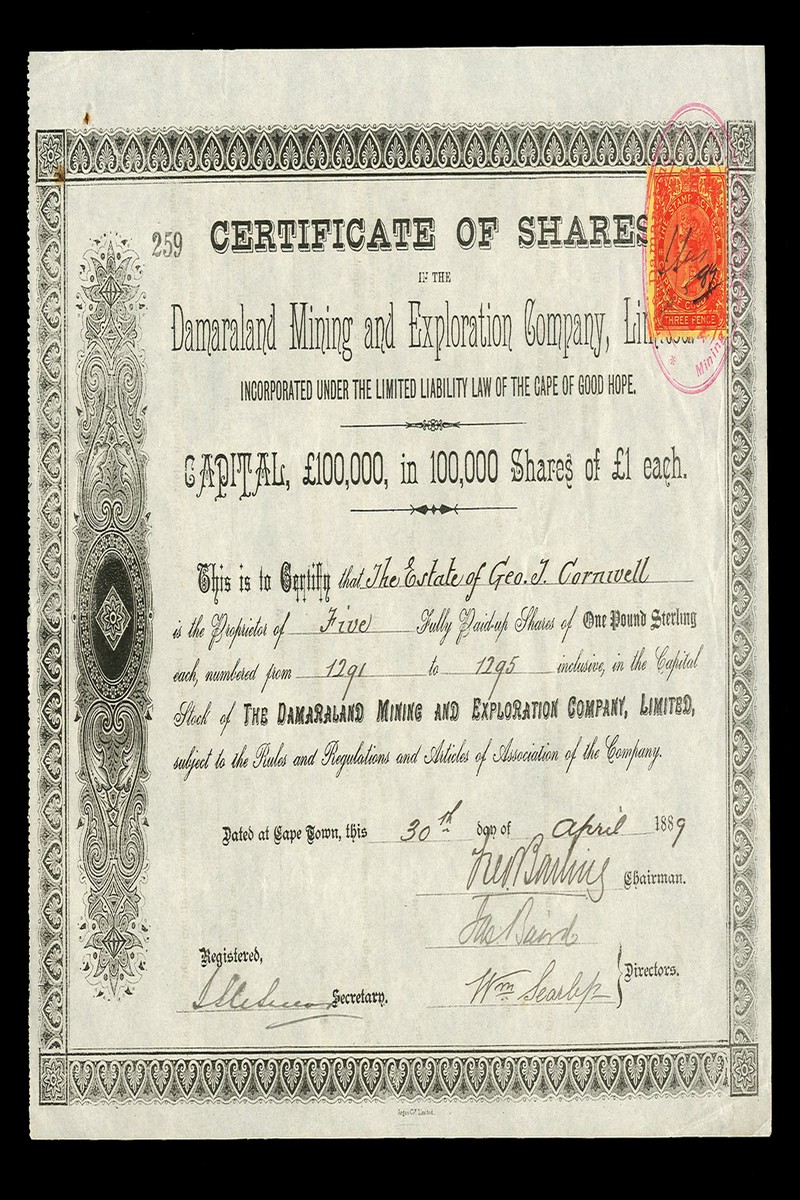 259
CERTIFICATE OF SHARES
IN THE
Damaraland Mining and Exploration Company,
INCORPORATED UNDER THE LIMITED LIABILITY LAW OF THE CAPE OF GOOD HOPE.
CAPITAL, £100,000, in 100,000 Shares of £1 each.
This is to Certify that The Estate of Geo. J. Cornwell
is the Proprietor of Five Fully Paid-up Shares of One Pound Sterling
each, numbered from 1291 to 1295 inclusive, in the Capital
Stock of THE DAMARALAND MINING AND EXPLORATION COMPANY, LIMITED,
subject to the Rules and Regulations and Articles of Association of the Company.
Dated at Cape Town, this 30th day of April 1889
Chairman.
Jas Baird
Registered,
Directors.
Secretary.
Wm
THE STAMP ACT
THREE PENCE
Mining
Argus C.º Limited.